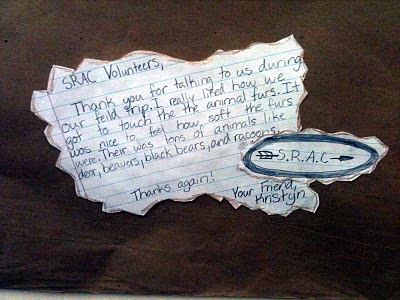 SRAC Volunteers,
Thank you for talking to us during
our feild trip. I really liked how we
got to touch the the animal furs. It
was nice to feel how soft the furs
were. Their was tons of animals like
dear, beavers, black bears, and racoons.
Thanks again!
Your Friend,
Kristyn
S.R.A.C